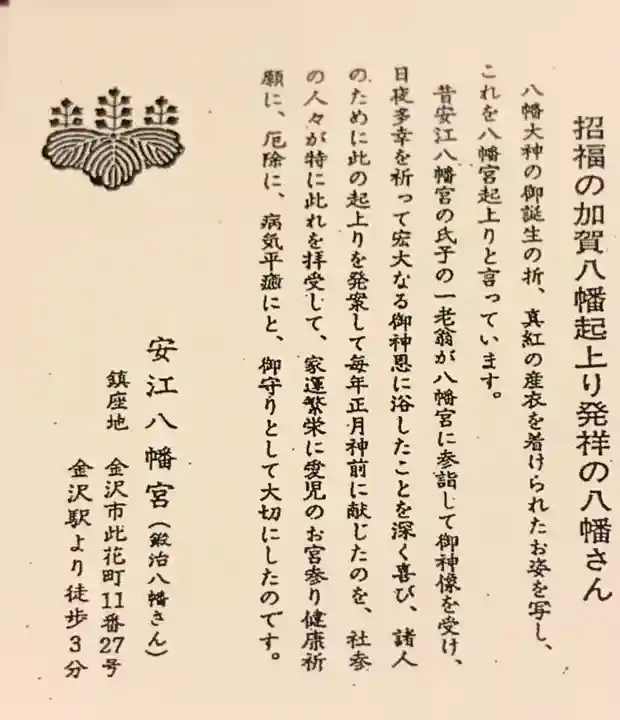 招福の加賀八幡起上り発祥の八幡さん
八幡大神の御誕生の折、真紅の産衣を着けられたお姿を写し、
これを八幡宮起上りと言っています。
昔安江八幡宮の氏子の一老翁が八幡宮に参詣して御神像を受け、
日夜多幸を祈って宏大なる御神恩に浴したことを深く喜び、諸人
のために此の起上りを発案して毎年正月神前に献じたのを、社参
の人々が特に此れを拝受して、家運繁栄に愛児のお宮参り健康祈
願に、厄除に、病気平癒にと、御守りとして大切にしたのです。
安江八幡宮（鍛治八幡さん）
鎮座地 金沢市此花町11番27号
金沢駅より徒歩3分